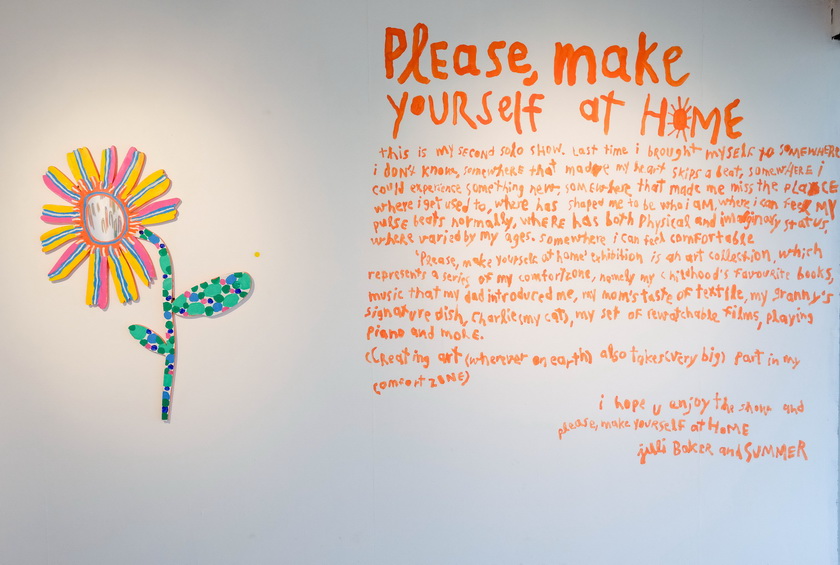 Please, make
yourself at HOME
this is my second solo show. Last time i brought myself to somewhere
i don't know, somewhere that made my heart skips a beat, somewhere i
could experience something new, somewhere that made me miss the place
where i get used to, where has shaped me to be who i am, where i can feel my
pulse beats normally, where has both physical and imaginary status
where varied by my ages. somewhere i can feel comfortable
'Please, make yourself at home' exhibition is an art collection, which
represents a series of my comfort zone, namely my childhood's favourite books,
music that my dad introduced me, my mom's taste of textile, my granny's
signature dish, Charlie (my cat), my set of rewatchable films, playing
piano and more.
(Creating art (wherever on earth) also takes (very big) part in my
comfort zone)
i hope u enjoy the show and
please, make yourself at HOME
juli Baker and SUMMER